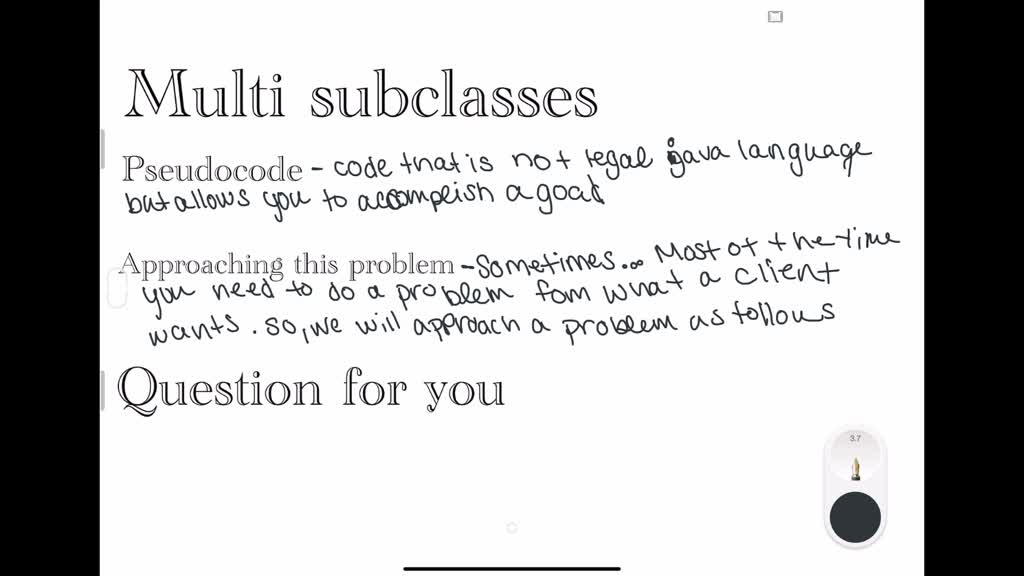 Multi subclasses
Pseudocode - code that is not legal java language
but allows you to accomplish a goal
Approaching this problem - Sometimes... Most of the time
you need to do a problem fom what a client
wants. so, we will approach a problem as follows
Question for you
3.7